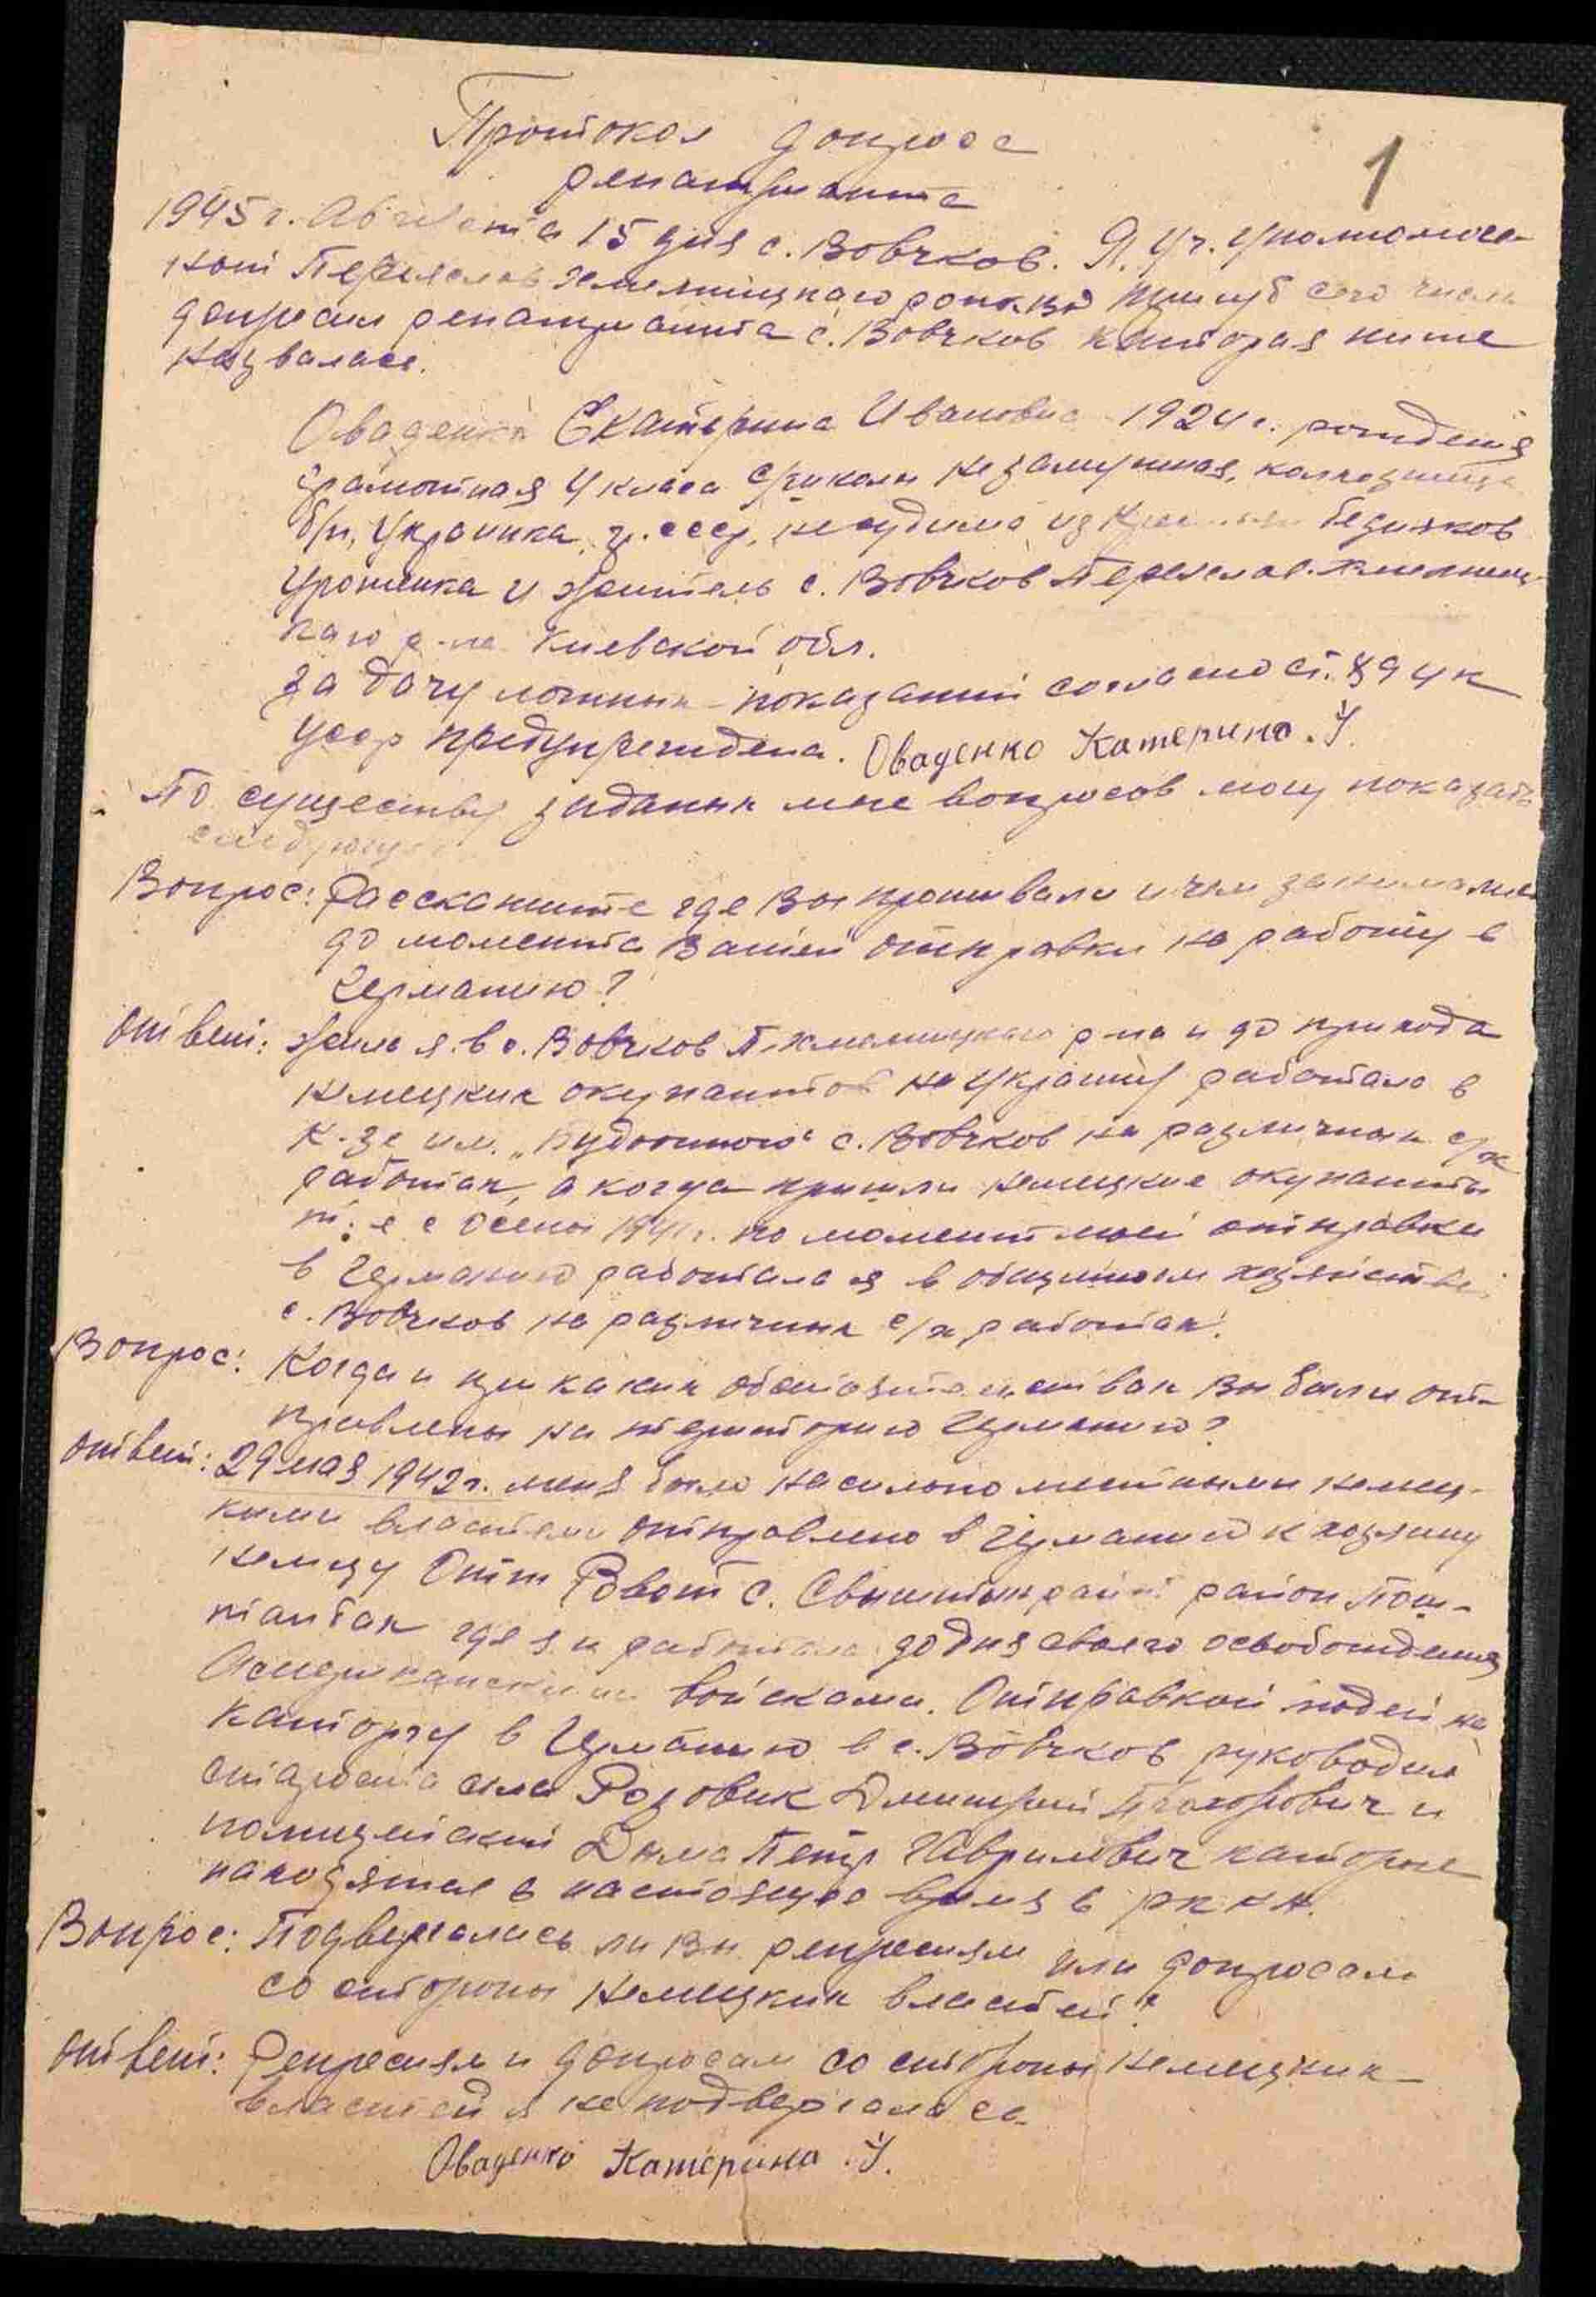 Протокол допроса
1
репатрианта
1945 г. Августа 15 дня с. Вовчков. Я, Уч. Уполномоче-
ный Переяслав Хмельницкаго РО НКВД сего числа
допросил репатрианта с. Вовчков каторая ниже
назвалась.
Оваденко Екатерина Ивановна 1924 г. рождения
грамотная 4 класа с/школы незамужная, колхозница
б/п, Украинка, гр. СССР, не судима, из бедняков
Уроженка и житель с. Вовчков Переяслав-Хмельниц-
каго р-на Киевской обл.
За дачу ложных показаний согласно ст. 89 УК
УССР предупреждена. Оваденко Катерина И.
По существу заданых мне вопросов могу показать
следующее
Вопрос: Расскажите где Вы проживали и чем занимались
до момента Вашей отправки на работу в
Германию?
Ответ: Жила я в с. Вовчков П-Хмельницкаго р-на и до прихода
немецких окупантов на Украину работала в
к-зе им. „Будённого" с. Вовчков на различных с/х
работах, а когда пришли немецкие окупанты
т.е с осени 1941 г. по момент моей отправки
в Германию работала я в общинном хозяйстве
с. Вовчков на различных с/х работах.
Вопрос: Когда и при каких обстоятельствах Вы были от-
правлены на територию Германию?
Ответ: 29 мая 1942 г. меня было насильно местными немец-
кими властями отправлено в Германию к хозяину
немцу Отт с. район
где я и работала до дня своего освобождения
Американскими войсками. Отправкой людей на
каторгу в Германию в с. Вовчков руководил
староста села Розовик Дмитрий Прохорович и
полицейский Дыма Петр Гаврилович каторые
находятся в настоящее время в РККА.
Вопрос: Подвергались ли Вы репресиям или допросам
со стороны немецких властей?
Ответ: Репресиям и допросам со стороны немецких
властей я не подвергалась.
Оваденко Катерина И.